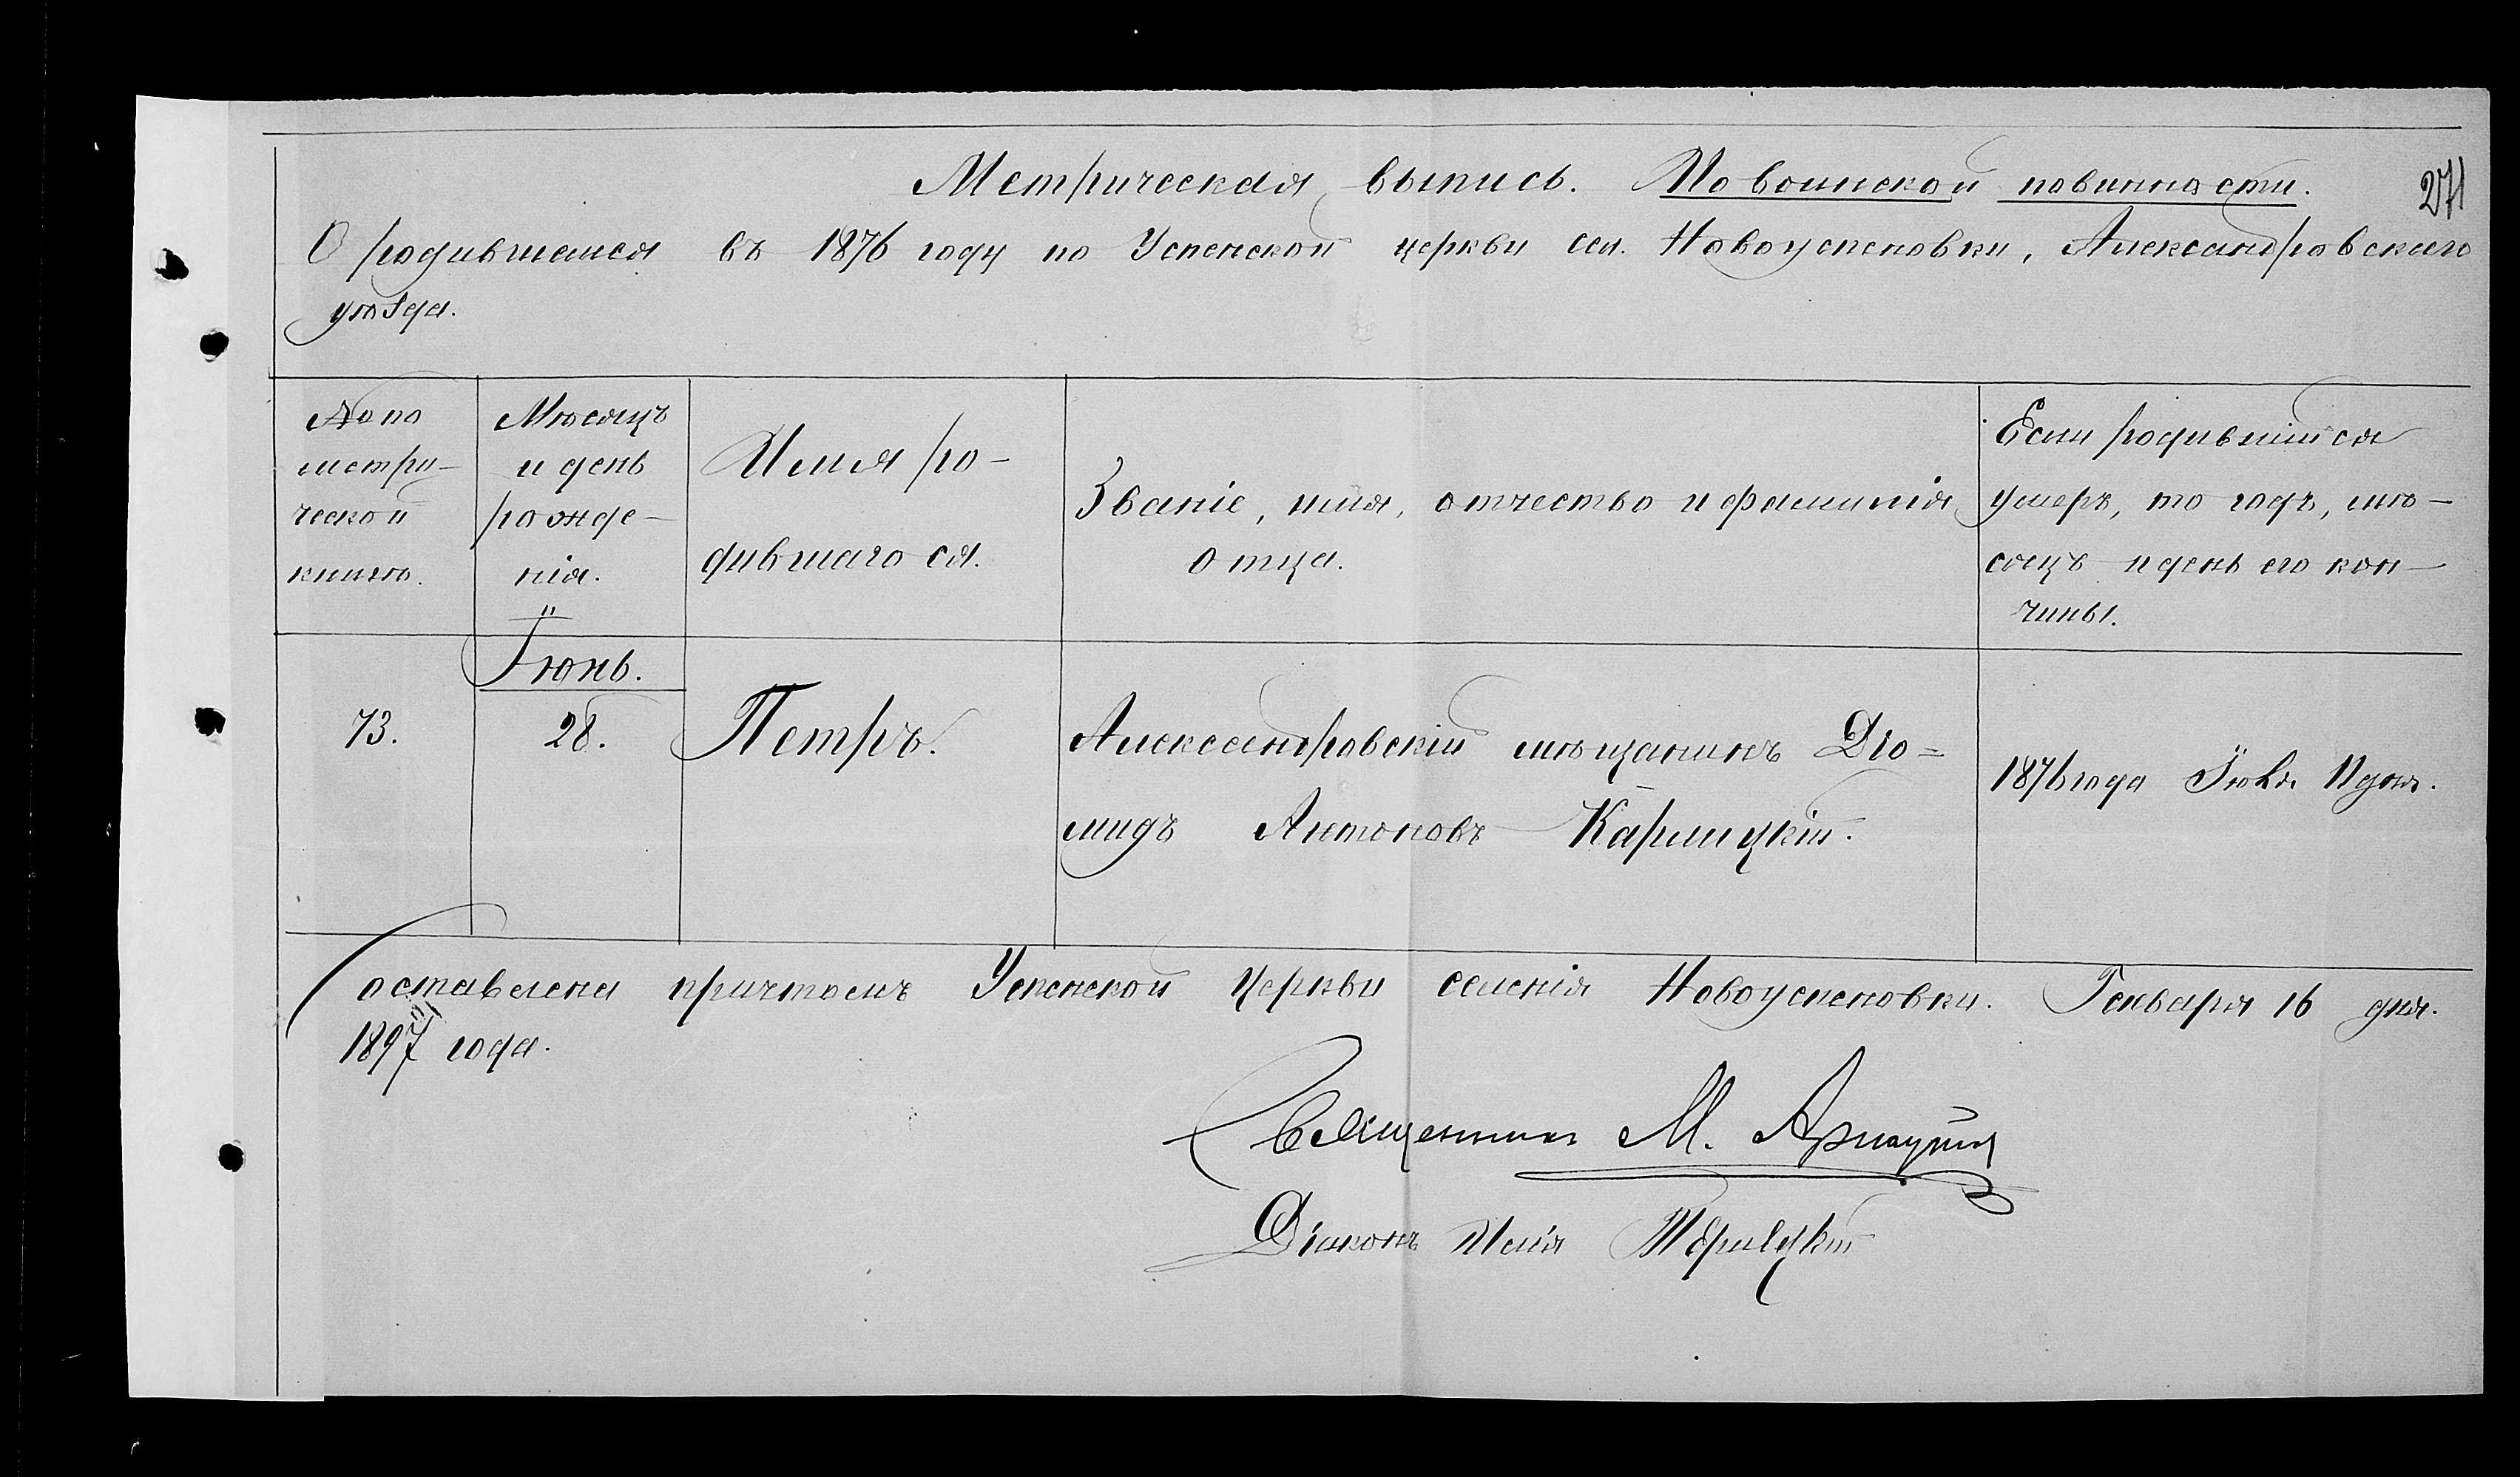 Метрическая выпись. По воинской повинности.
271
О родившемся въ 1876 году по Успенской церкви сел. Новоуспеновки, Александровскаго
уѣзда.
№ по
метри-
ческой
книгѣ.
Мѣсяцъ
и день
рожде-
нія.
Имя ро-
дившагося.
Званіе, имя, отчество и фамилія
отца.
Если родившійся
умеръ, то годъ, мѣ-
сяцъ и день его кон-
чины.
Іюнь.
73.
28.
Петръ.
Александровскій мѣщанинъ Діо=
мидъ Антоновъ Кармицкій.
1876 года Іюля дня.
Составлена причтомъ Успенской Церкви селенія Новоуспеновки. Генваря 16 дня.
1897 года.
Священникъ М.
Діаконъ Илія